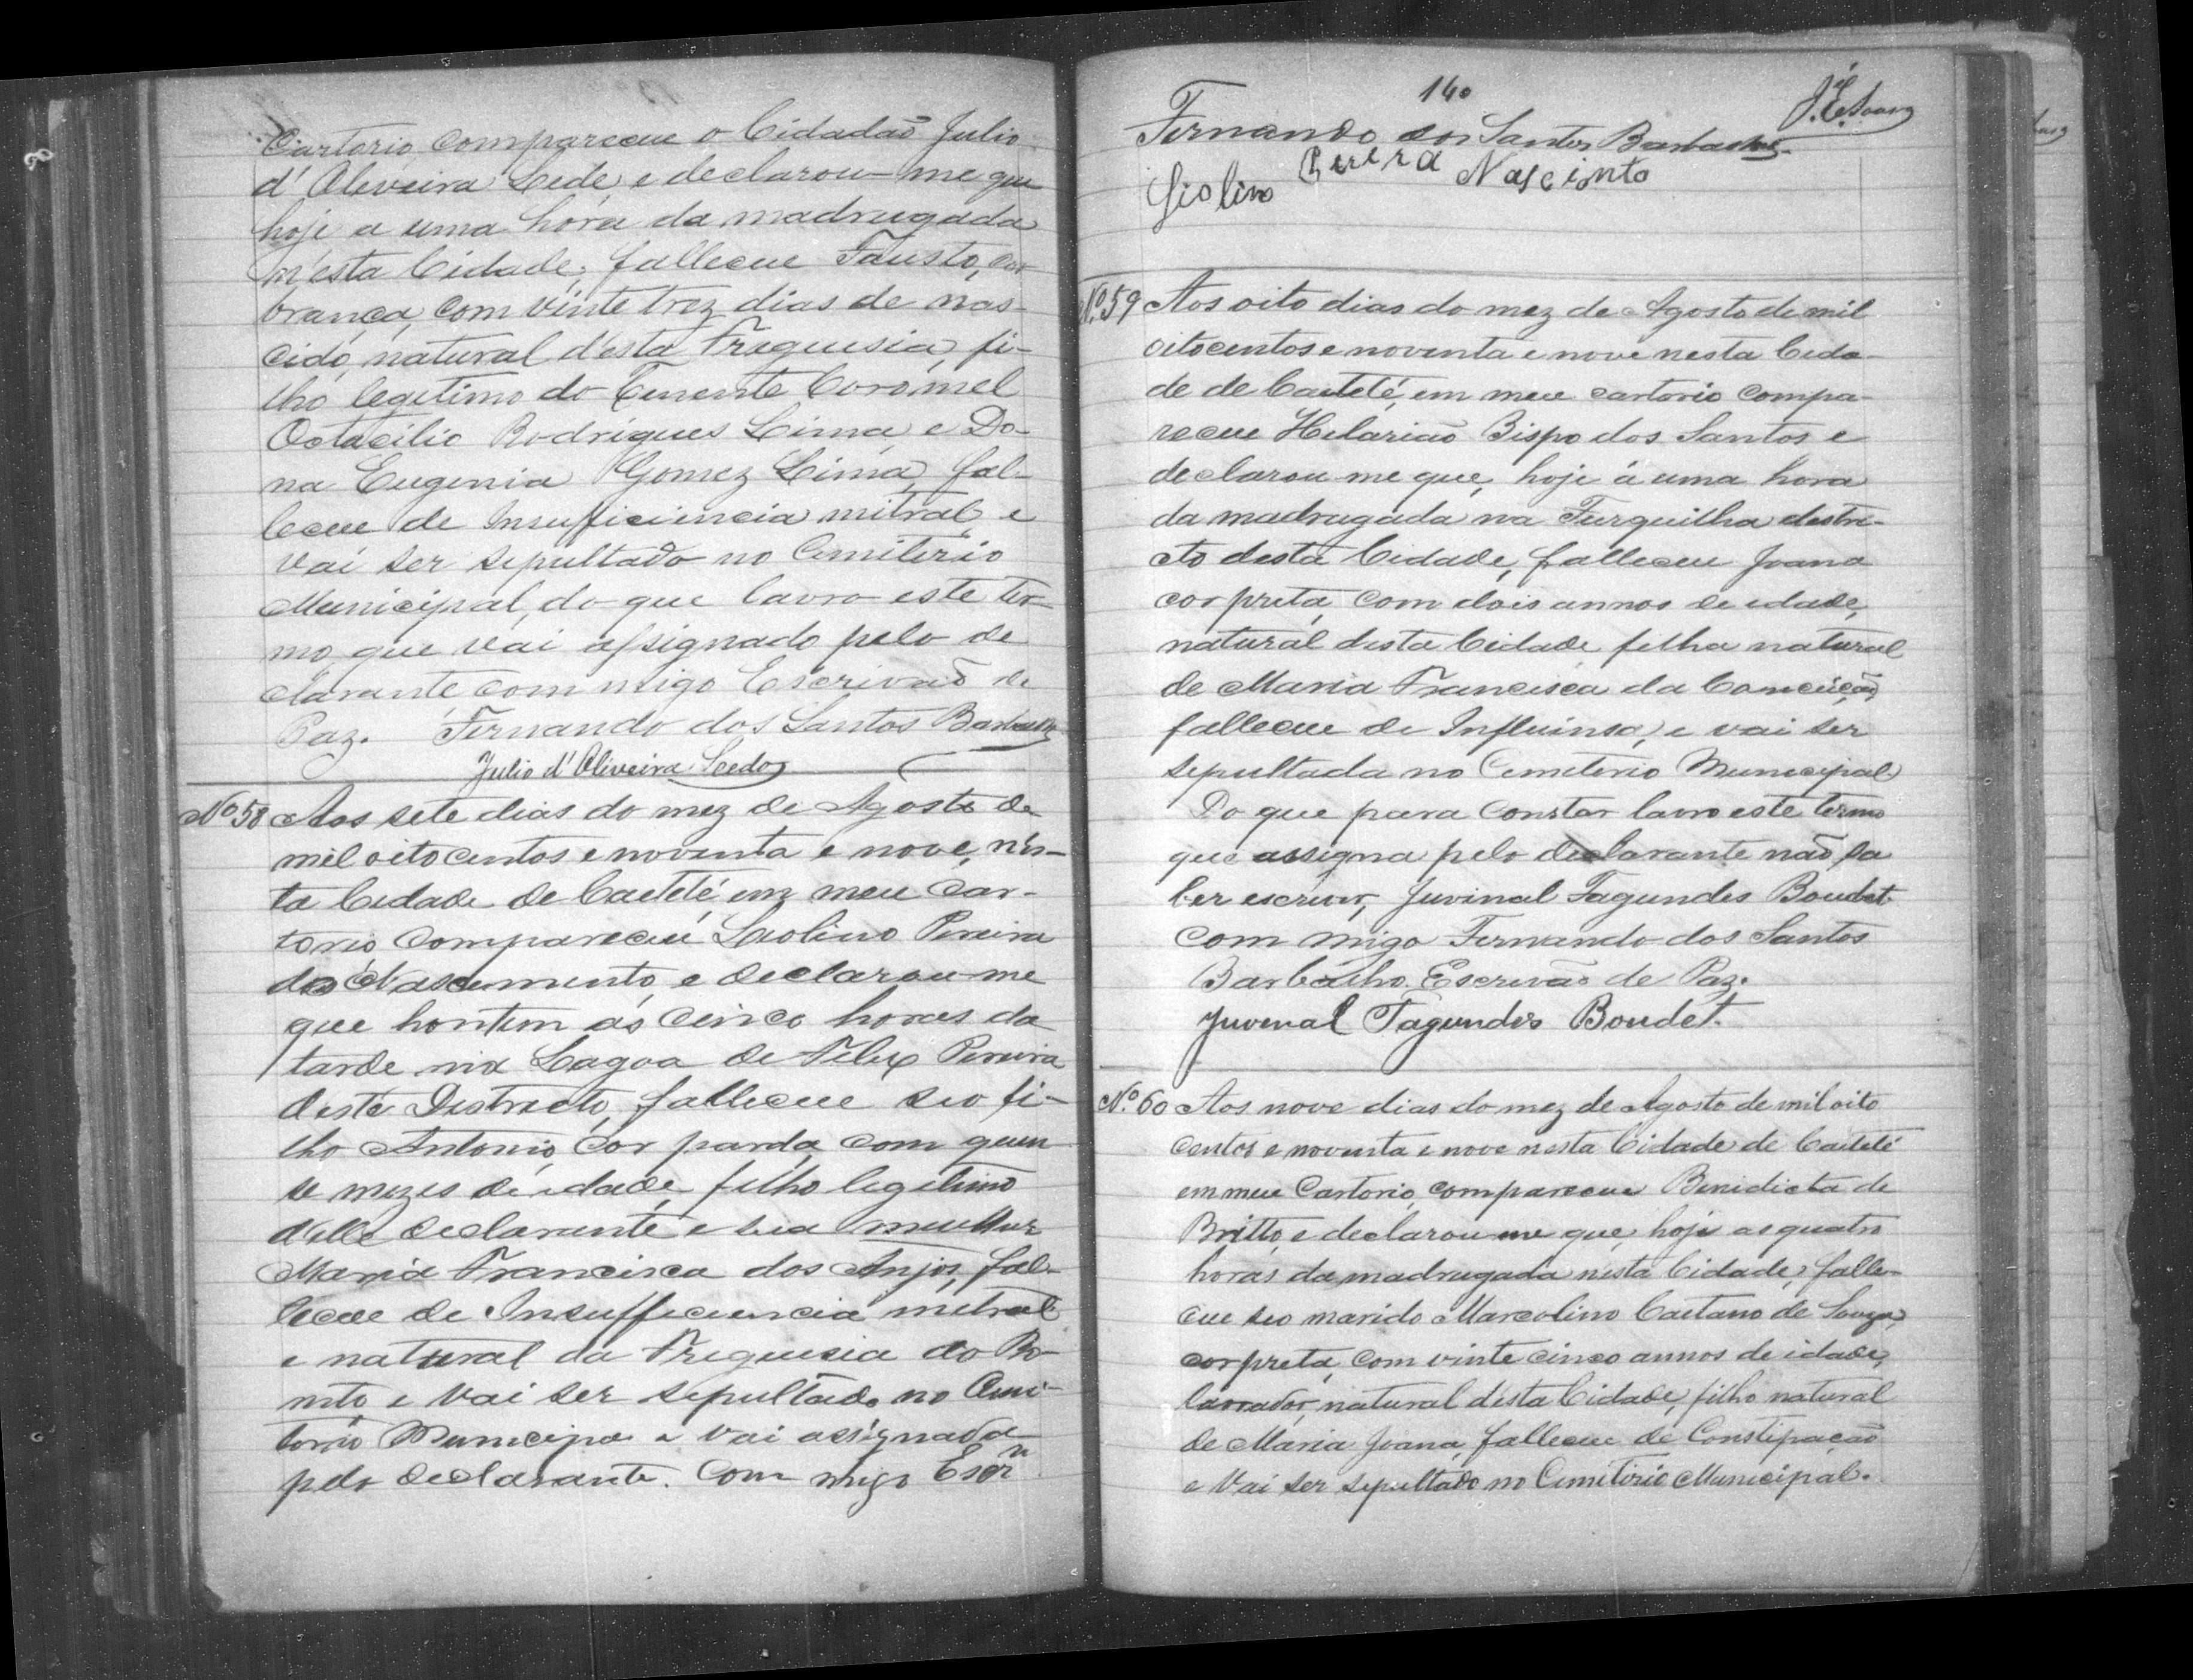 Cartorio, compareceu o Cidadão Julio
d' Oliveira Lede, e declarou-me que
hoje a uma hora da madrugada
n'esta Cidade, falleceu Fausto, cor
branca, com vinte trez dias de nas-
cido, natural d'esta Freguesia, fi-
lho legitimo do Tenente Coronel
Octacilio Rodrigues Lima, e Do-
na Eugenia Gomez Lima, fal-
leceu de Insufficiencia mitral e
vai ser sepultado no Cemiterio
Municipal, do que lavro este ter-
mo, que vai assignado pelo de
clarante com migo Escrivão de
Paz. Fernando dos Santos Barbalho
Julio d' Oliveira Ledo
Nº 58 Aos sete dias do mez de Agosto de
mil oito centos e noventa e nove, nes-
ta Cidade de Caeteté em meu car-
torio compareceu Liolino Pereira
do Nascimento, e declarou-me
que hontem ás cinco horas da
tarde na Lagoa de Felix Pereira
deste Destricto, falleceu seo fi-
lho Antonio, cor parda, com quin
se mezes de idade, filho legitimo
d'elle declarante e sua mulher
Maria Francisca dos Anjos, fal-
leceu de Insufficiencia metral
e natural da Freguesia do Bo-
nito e vai ser sepultado no Cemi-
terio Municipa e vai assignado
pelo declarante. Com migo Escrm
140
J. E. Soares
Fernando dos Santos Barbalho
Liolino Pereira Nascimto
Nº 59 Aos oito dias do mez de Agosto de mil
oitocentos e noventa e nove nesta Cida-
de de Caeteté, em meu cartorio compa-
receu Helarião Bispo dos Santos e
declarou-me que, hoje á uma hora
da madrugada na Furquilha destri-
cto desta Cidade, falleceu Joana
cor preta, com dois annos de edade,
natural desta Cidade filha natural
de Maria Francisca da Conceição,
falleceu de Influinsa, e vai ser
sepultada no Cemeterio Municipal
Do que para constar lavro este termo
que assigna pelo declarante não sa
ber escrever, Juvinal Fagundes Boudet
com migo Fernando dos Santos
Barbalho. Escrivão de Paz.
Juvenal Fagundes Boudet.
Nº 60 Aos nove dias do mez de Agosto de mil oito
centos e noventa e nove nesta Cidade de Caeteté
em meu Cartorio, compareceu Benidicta de
Britto, e declarou-me que, hoje as quatro
horas da madrugada nesta Cidade, falle-
ceu seo marido Marcolino Caetano de Souza,
cor preta, com vinte cinco annos de idade,
lavrador, natural desta Cidade, filho natural
de Maria Joana, falleceu de Constipação
e vai ser sepultado no Cemiterio Municipal.